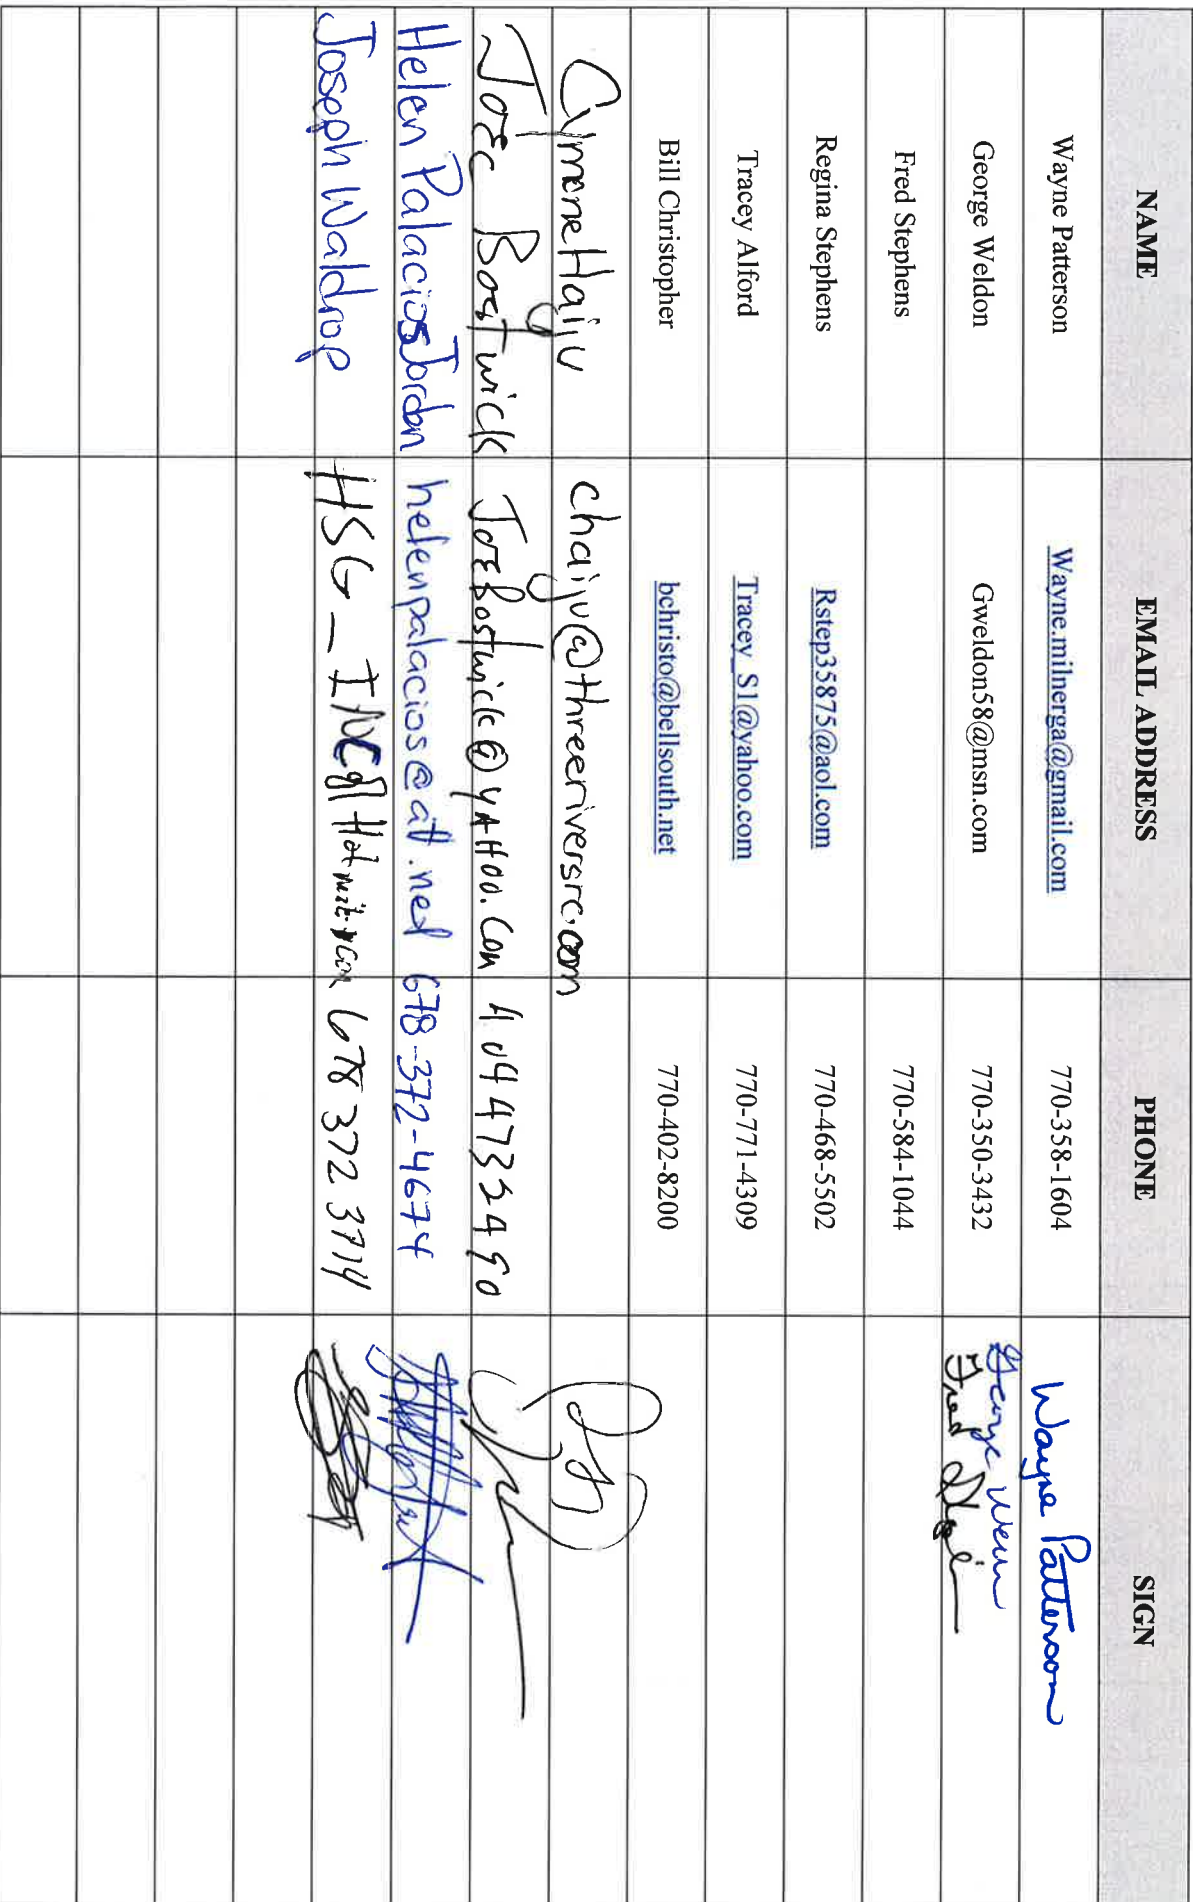 NAME EMAIL ADDRESS PHONE SIGN
Wayne Patterson Wayne.milnerga@gmail.com 770-358-1604 Wayne Patterson
George Weldon Gweldon58@msn.com 770-350-3432 George
Fred Stephens 770-584-1044 Fred
Regina Stephens Rstep35875@aol.com 770-468-5502
Tracey Alford Tracey_S1@yahoo.com 770-771-4309
Bill Christopher bchristo@bellsouth.net 770-402-8200
Cymone Haiju chaiju@threeriversrc.com
JoEc Bostwick JoEBostwick@YAHOO.Com
Helen Palacios Jordan helenpalacios@att.net 678-372-4674
Joseph Waldrop 678 372 3714